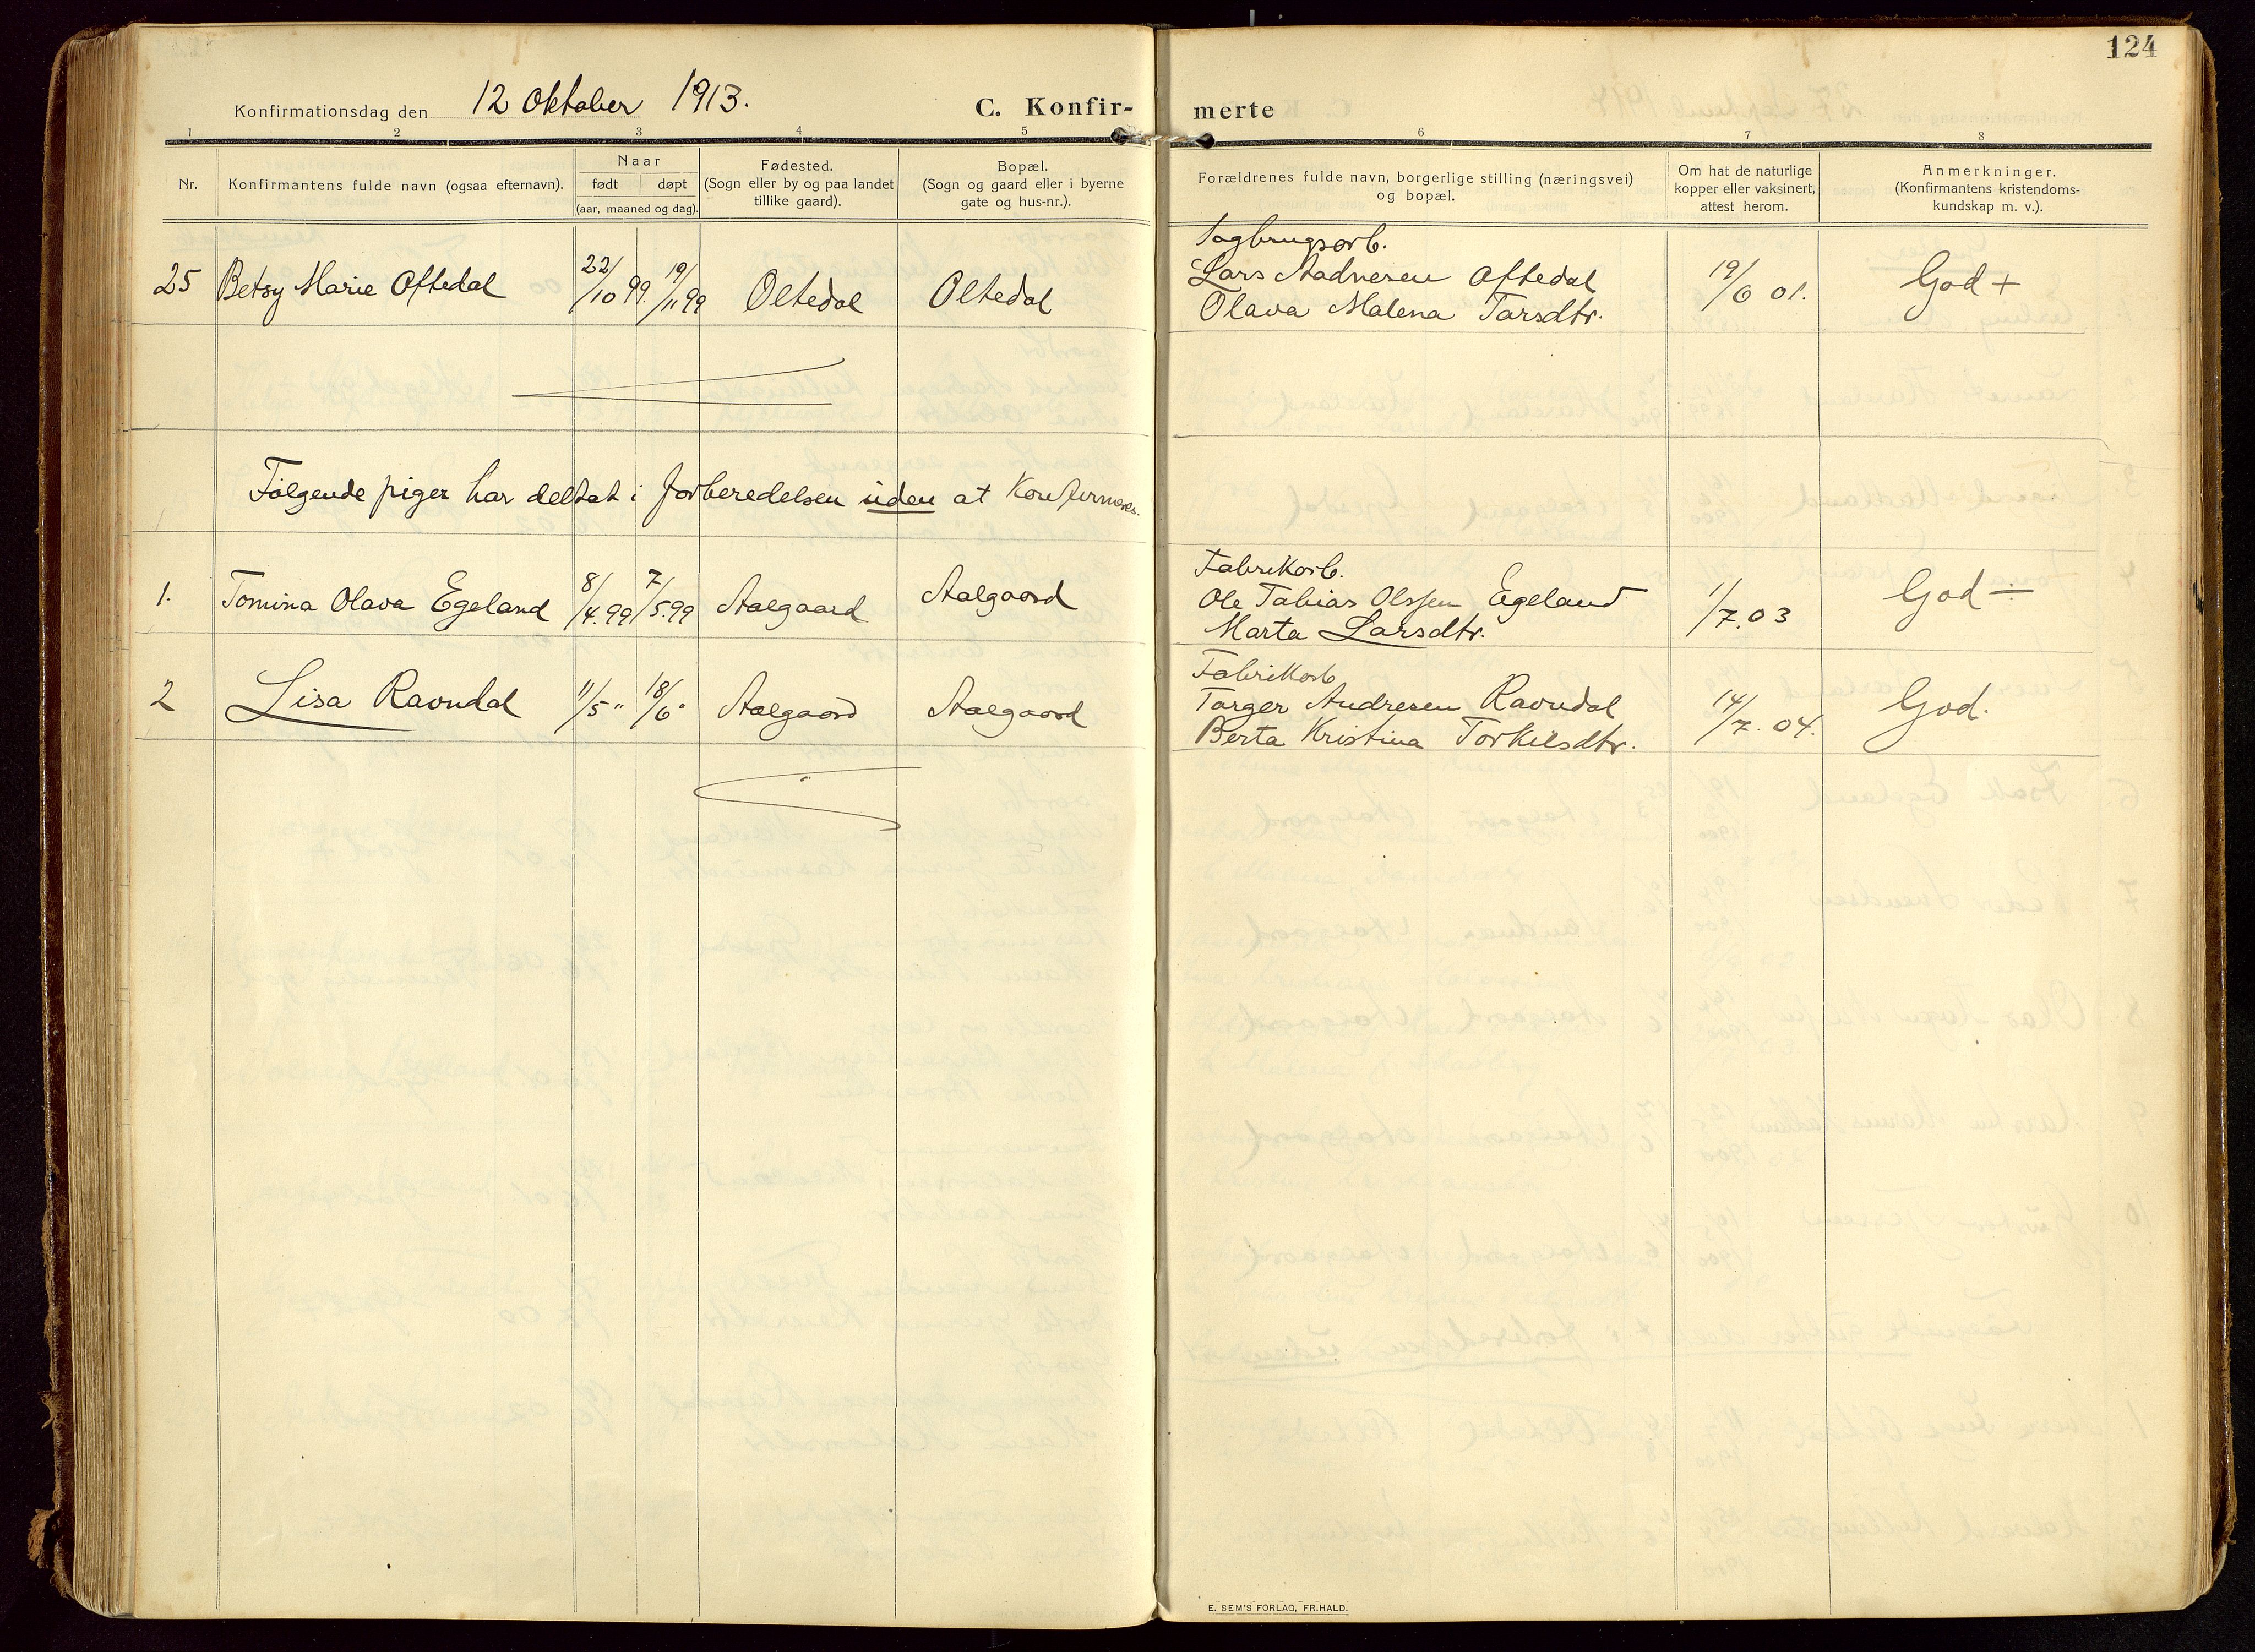 124
Konfirmationsdag den 12 Oktober 1913. C. Konfir- merte
1 2 3 4 5 6 7 8
Nr.
Konfirmantens fulde navn (ogsaa efternavn).
Naar
født døpt
(aar, maaned og dag).
Fødested.
(Sogn eller by og paa landet
tillike gaard).
Bopæl.
(Sogn og gaard eller i byerne
gate og hus-nr.).
Forældrenes fulde navn, borgerlige stilling (næringsvei)
og bopæl.
Om hat de naturlige
kopper eller vaksinert,
attest herom.
Anmerkninger.
(Konfirmantens kristendoms-
kundskap m. v.).
Sagbrugsarb.
25 Betsy Marie Oftedal 22/10 99. 19/11 99 Oltedal Oltedal Lars Aadnesen Oftedal 19/6 01. God +
Olava Malena Tarsdtr.
Følgende piger har deltat i forberedelsen uden at Konfirmeres.
Fabrikarb.
1. Tomina Olava Egeland 8/4.99 7/5.99 Aalgaard Aalgaard Ole Tobias Olssen Egeland 1/7.03 God ÷
Marta Larsdtr.
Fabrikarb
2 Lisa Ravndal 11/5 " 18/6 " Aalgaard Aalgaard Torger Andresen Ravndal 14/7. 04. God.
Berta Kristina Torkilsdtr.
E. SEM'S FORLAG, FR.HALD.